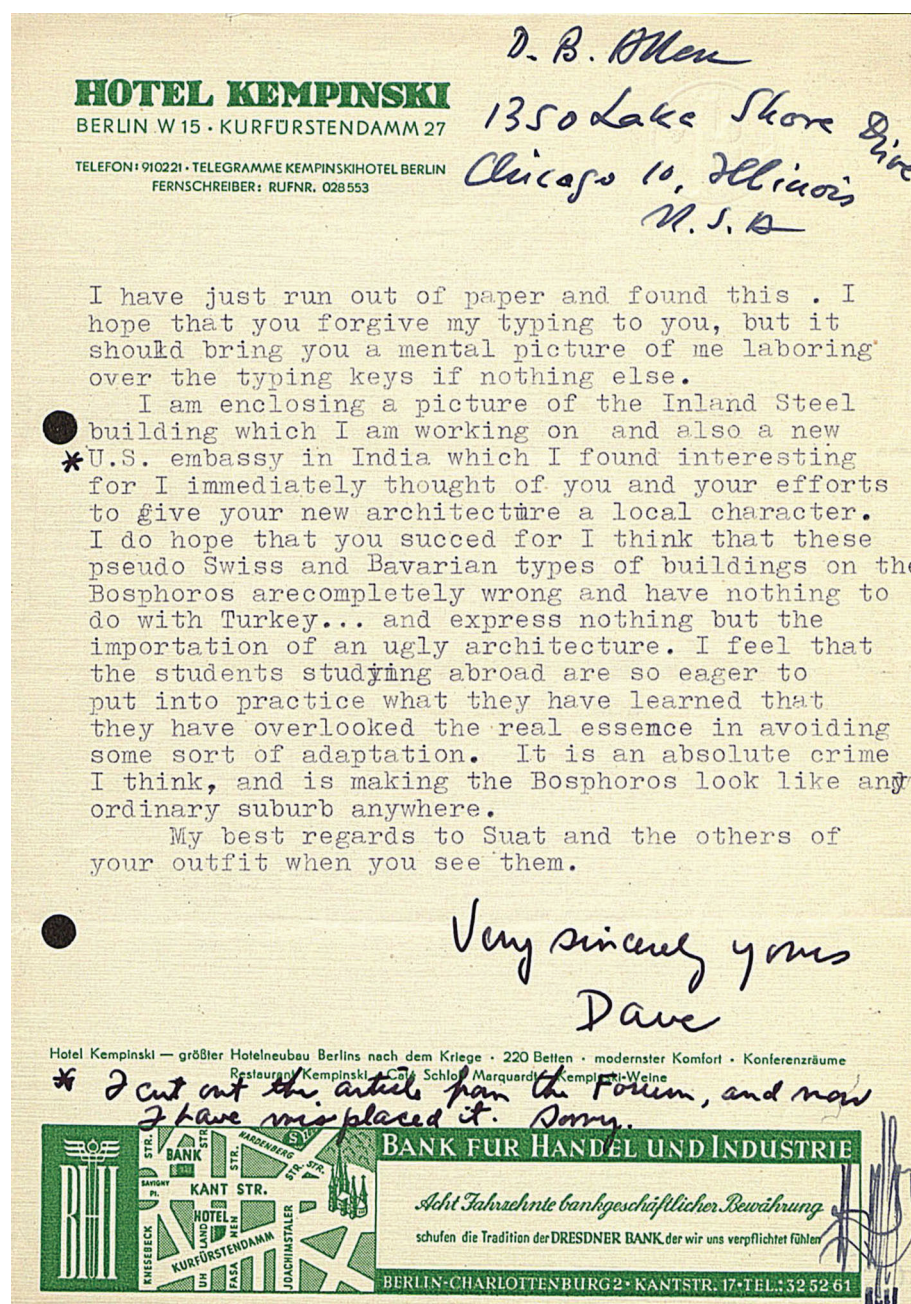 D. B. Allen
HOTEL KEMPINSKI
BERLIN W 15 · KURFÜRSTENDAMM 27
TELEFON: 910221 · TELEGRAMME KEMPINSKIHOTEL BERLIN
FERNSCHREIBER: RUFNR. 028553
1350 Lake Shore Drive
Chicago 10, Illinois
U.S.A
I have just run out of paper and found this . I
hope that you forgive my typing to you, but it
should bring you a mental picture of me laboring
over the typing keys if nothing else.
I am enclosing a picture of the Inland Steel
building which I am working on and also a new
*U.S. embassy in India which I found interesting
for I immediately thought of you and your efforts
to give your new architecture a local character.
I do hope that you succed for I think that these
pseudo Swiss and Bavarian types of buildings on the
Bosphoros arecompletely wrong and have nothing to
do with Turkey... and express nothing but the
importation of an ugly architecture. I feel that
the students studying abroad are so eager to
put into practice what they have learned that
they have overlooked the real essence in avoiding
some sort of adaptation. It is an absolute crime
I think, and is making the Bosphoros look like any
ordinary suburb anywhere.
My best regards to Suat and the others of
your outfit when you see them.
Very sincerely yours
Dave
Hotel Kempinski — größter Hotelneubau Berlins nach dem Kriege · 220 Betten · modernster Komfort · Konferenzräume
Restaurant Kempinski · Café Schloß Marquardt · Kempinski-Weine
* I cut out the article from the Forum, and now
I have misplaced it. Sorry.
BHI
STR.
BANK
STR.
STR.
HARDENBERG
STR.
STR.
SAVIGNY
PL.
KANT STR.
HOTEL
KNESEBECK
UHLAND
FASANEN
KURFÜRSTENDAMM
JOACHIMSTALER
BANK FÜR HANDEL UND INDUSTRIE
Acht Jahrzehnte bankgeschäftlicher Bewährung
schufen die Tradition der DRESDNER BANK, der wir uns verpflichtet fühlen
BERLIN-CHARLOTTENBURG 2 · KANTSTR. 17 · TEL.: 32 52 61